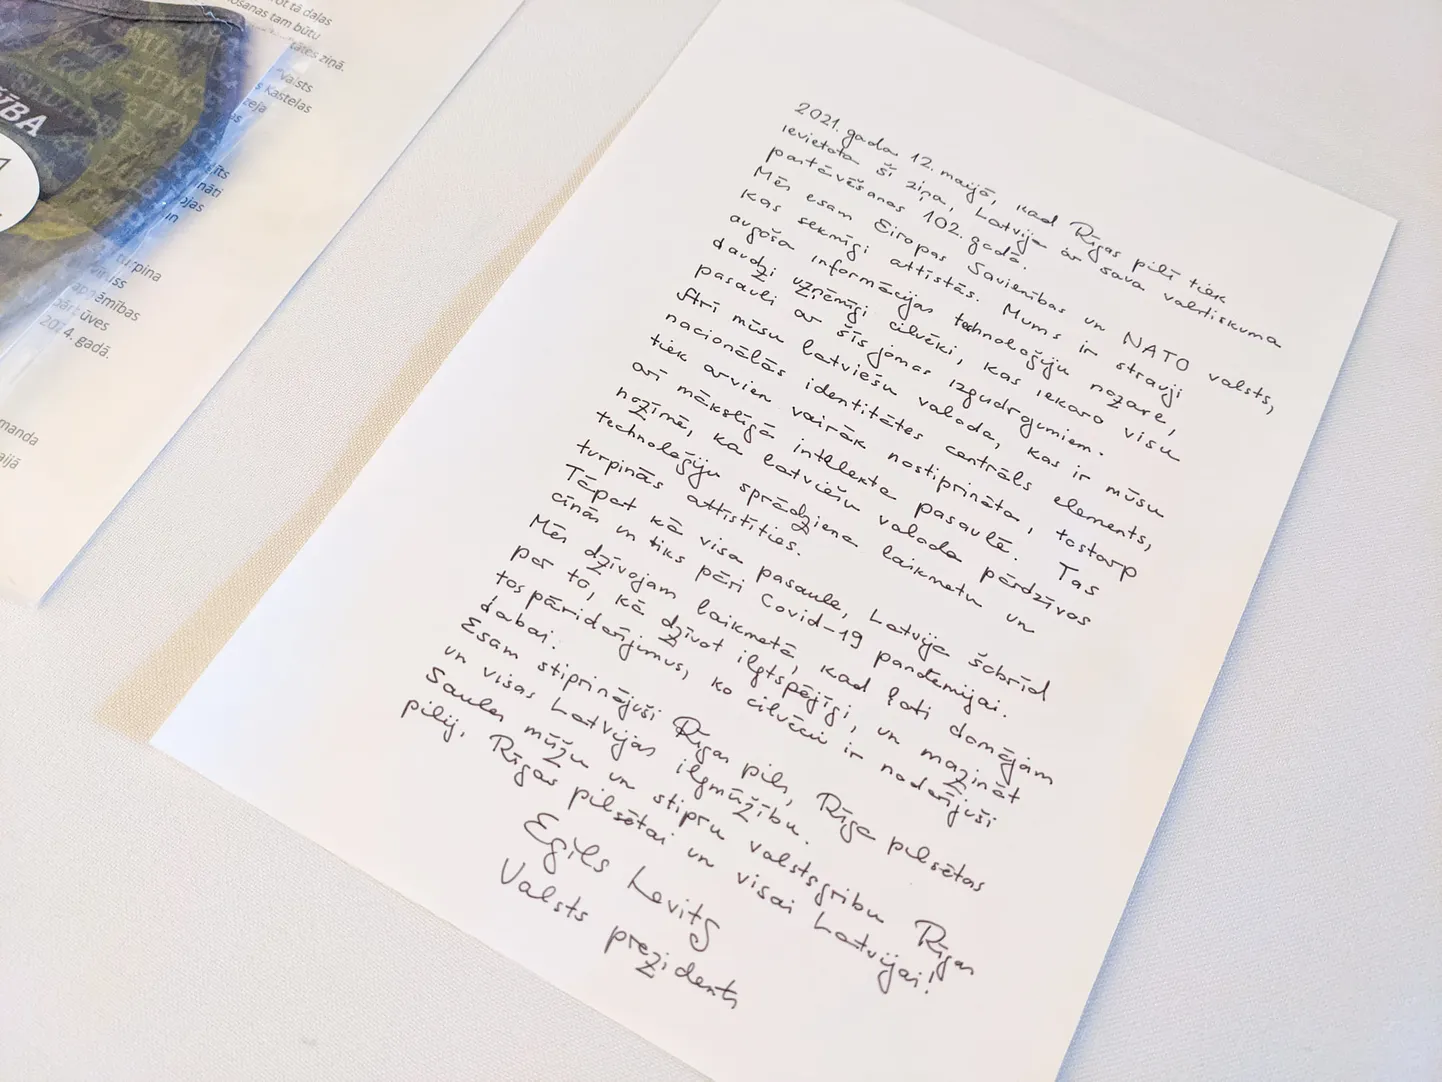 ot tā daļas
šanas tam būtu
tātes ziņā.
valsts
s Kastelas
zeja
os
ĪBA
gīts
nāti
ojas
in
turpina
viņiss
apņēmības
pārbūves
2014. gadā.
manda
aijā
2021. gada 12. maijā, kad Rīgas pilī tiek
ievietota šī ziņa, Latvija ar sava valstiskuma
pastāvēšanas 102. gadā.
Mēs esam Eiropas Savienības un NATO valsts,
kas sekmīgi attīstās. Mums ir strauji
augoša informācijas tehnoloģiju nozare,
daudzi uzņēmīgi cilvēki, kas iekaro visu
pasauli ar šīs jomas izgudrojumiem.
Arī mūsu latviešu valoda, kas ir mūsu
nacionālās identitātes centrāls elements,
tiek arvien vairāk nostiprināta, tostarp
arī mākslīgā intelekta pasaulē. Tas
nozīmē, ka latviešu valoda pārdzīvos
tehnoloģiju sprādziena laikmetu un
turpinās attīstīties.
Tāpat kā visa pasaule, Latvija šobrīd
cīnās un tiks pāri Covid-19 pandēmijai.
Mēs dzīvojam laikmetā, kad ļoti domājam
par to, kā dzīvot ilgtspējīgi, un mazināt
tos pāridarījumus, ko cilvēki ir nodarījuši
dabai.
Esam stiprinājuši Rīgas pils, Rīgas pilsētas
un visas Latvijas ilgmūžību.
Saules mūžu un stipru valstsgribu Rīgas
pilij, Rīgas pilsētai un visai Latvijai!
Egils Levits
Valsts prezidents